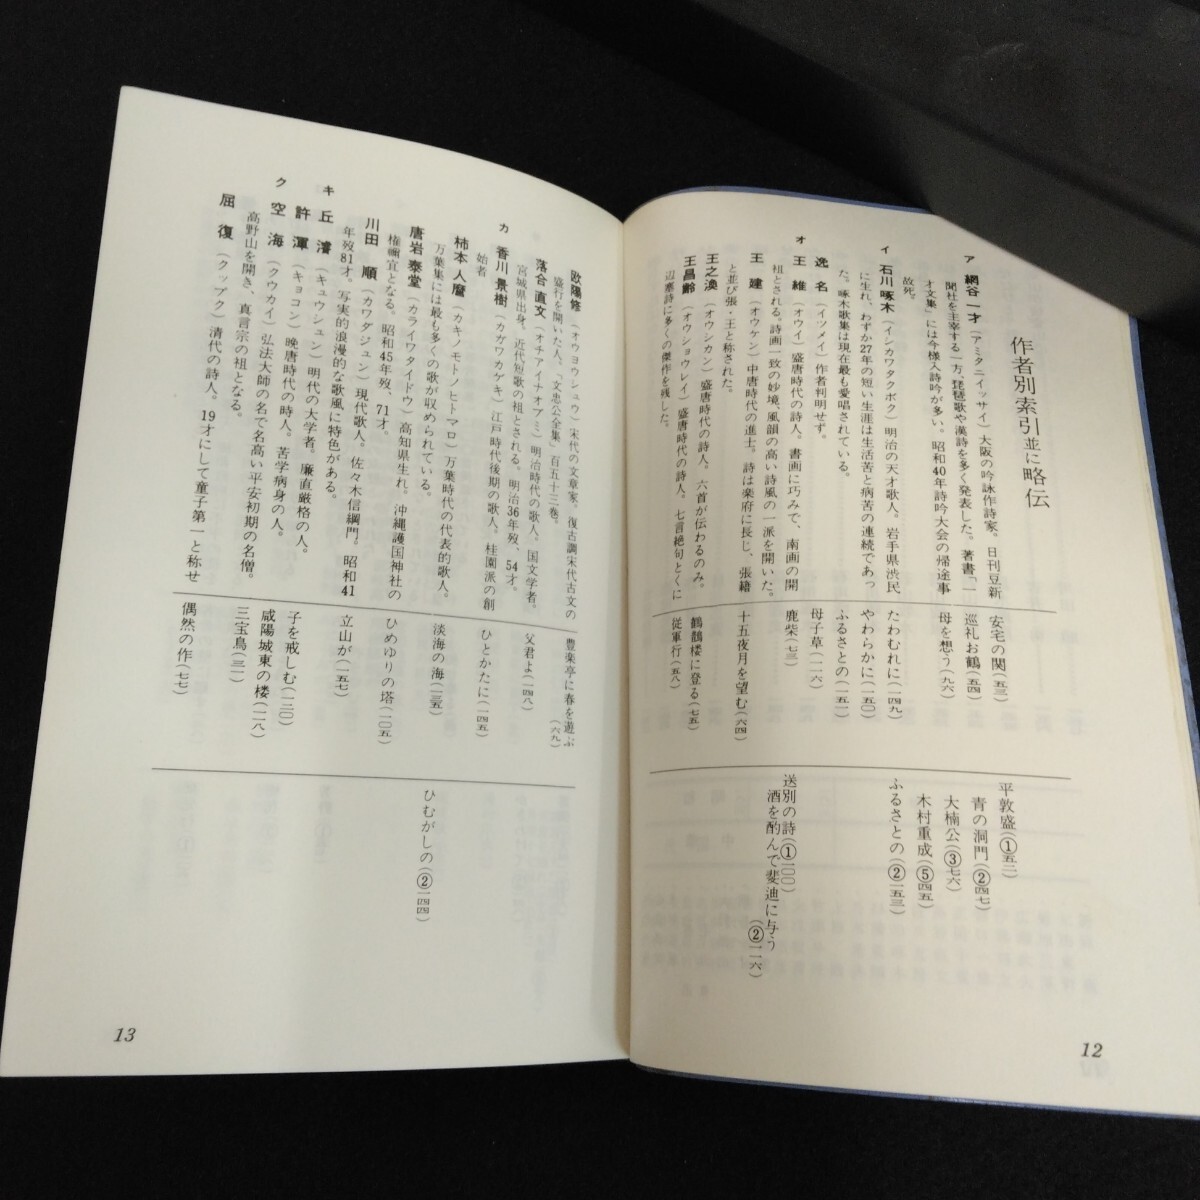 作者別索引並に略伝
ア 網谷一才（アミタニイッサイ）大阪の吟詠作詩家。日刊豆新
聞社を主宰する一方、琵琶歌や漢詩を多く発表した。著書「一
才文集」には今様入詩吟が多い。昭和40年詩吟大会の帰途事
故死。
イ 石川啄木（イシカワタクボク）明治の天才歌人。岩手県渋民
に生れ、わずか27年の短い生涯は生活苦と病苦の連続であっ
た。啄木歌集は現在最も愛唱されている。
逸名（イツメイ）作者判明せず。
オ 王維（オウイ）盛唐時代の詩人。書画に巧みで、南画の開
祖とされる。詩画一致の妙境、風韻の高い詩風の一派を開いた。
王建（オウケン）中唐時代の進士。詩は楽府に長じ、張籍
と並び張・王と称された。
王之渙（オウシカン）盛唐時代の詩人。六首が伝わるのみ。
王昌齢（オウショウレイ）盛唐時代の詩人。七言絶句とくに
辺塞詩に多くの傑作を残した。
安宅の関（五三）
巡礼お鶴（五四）
母を想う（九六）
たわむれに（一四九）
やわらかに（一五〇）
ふるさとの（一五一）
母子草（一一六）
鹿柴（七三）
十五夜月を望む（六四）
鸛鵲楼に登る（七五）
従軍行（五八）
平敦盛（①五二）
青の洞門（②四七）
大楠公（③七六）
木村重成（⑤四五）
ふるさとの（②一五三）
送別の詩（①一〇〇）
酒を酌んで斐迪に与う
（②一一六）
12
欧陽修（オウヨウシュウ）宋代の文章家。復古調宋代古文の
盛行を開いた人。「文忠公全集」百五十三巻。
落合直文（オチアイナオブミ）明治時代の歌人。国文学者。
宮城県出身。近代短歌の祖とされる。明治36年歿、54才。
カ 香川景樹（カガワカゲキ）江戸時代後期の歌人。桂園派の創
始者
柿本人麿（カキノモトノヒトマロ）万葉時代の代表的歌人。
万葉集には最も多くの歌が収められている。
唐岩泰堂（カライワタイドウ）高知県生れ。沖縄護国神社の
権禰宜となる。昭和45年歿、71才。
川田順（カワダジュン）現代歌人。佐々木信綱門。昭和41
年歿81才。写実的浪漫的な歌風に特色がある。
キ 丘濬（キュウシュン）明代の大学者。廉直厳格の人。
許渾（キョコン）晩唐時代の時人。苦学病身の人。
ク 空海（クウカイ）弘法大師の名で名高い平安初期の名僧。
高野山を開き、真言宗の祖となる。
屈復（クップク）清代の詩人。19才にして童子第一と称せ
豊楽亭に春を遊ぶ
（六九）
父君よ（一四八）
ひとかたに（一四五）
淡海の海（一三五）
ひめゆりの塔（一〇五）
立山が（一五七）
子を戒しむ（一二〇）
咸陽城東の楼（一一八）
三宝鳥（三一）
偶然の作（七七）
ひむがしの（②一四四）
13